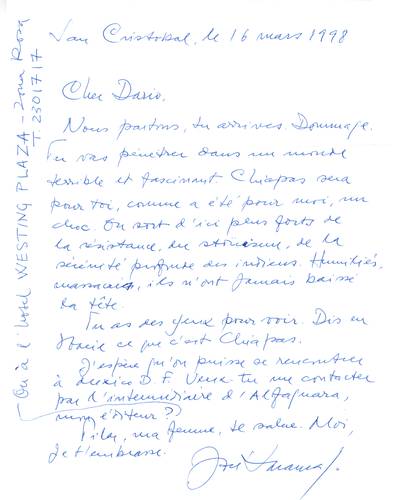 San Cristobal, le 16 mars 1998
Cher Dario,
Nous partons, tu arrives. Dommage.
Tu vas pénétrer dans un monde
terrible et fascinant. Chiapas sera
pour toi, comme a été pour moi, un
choc. On sort d'ici plus forts de
la résistance, du stoïcisme, de la
sérénité profonde des indiens. Humiliés,
massacrés, ils n'ont jamais baissé
la tête.
Tu as des yeux pour voir. Dis en
Italie ce que c'est Chiapas.
J'espère qu'on puisse se rencontrer
à Mexico D.F. Veux-tu me contacter
par l'intermédiaire d'Alfaguara,
mon éditeur?
Pilar, ma femme, te salue. Moi,
je t'embrasse.
José Saramago
Ou à l'hotel WESTING PLAZA - Zona Rosa
T. 2301717